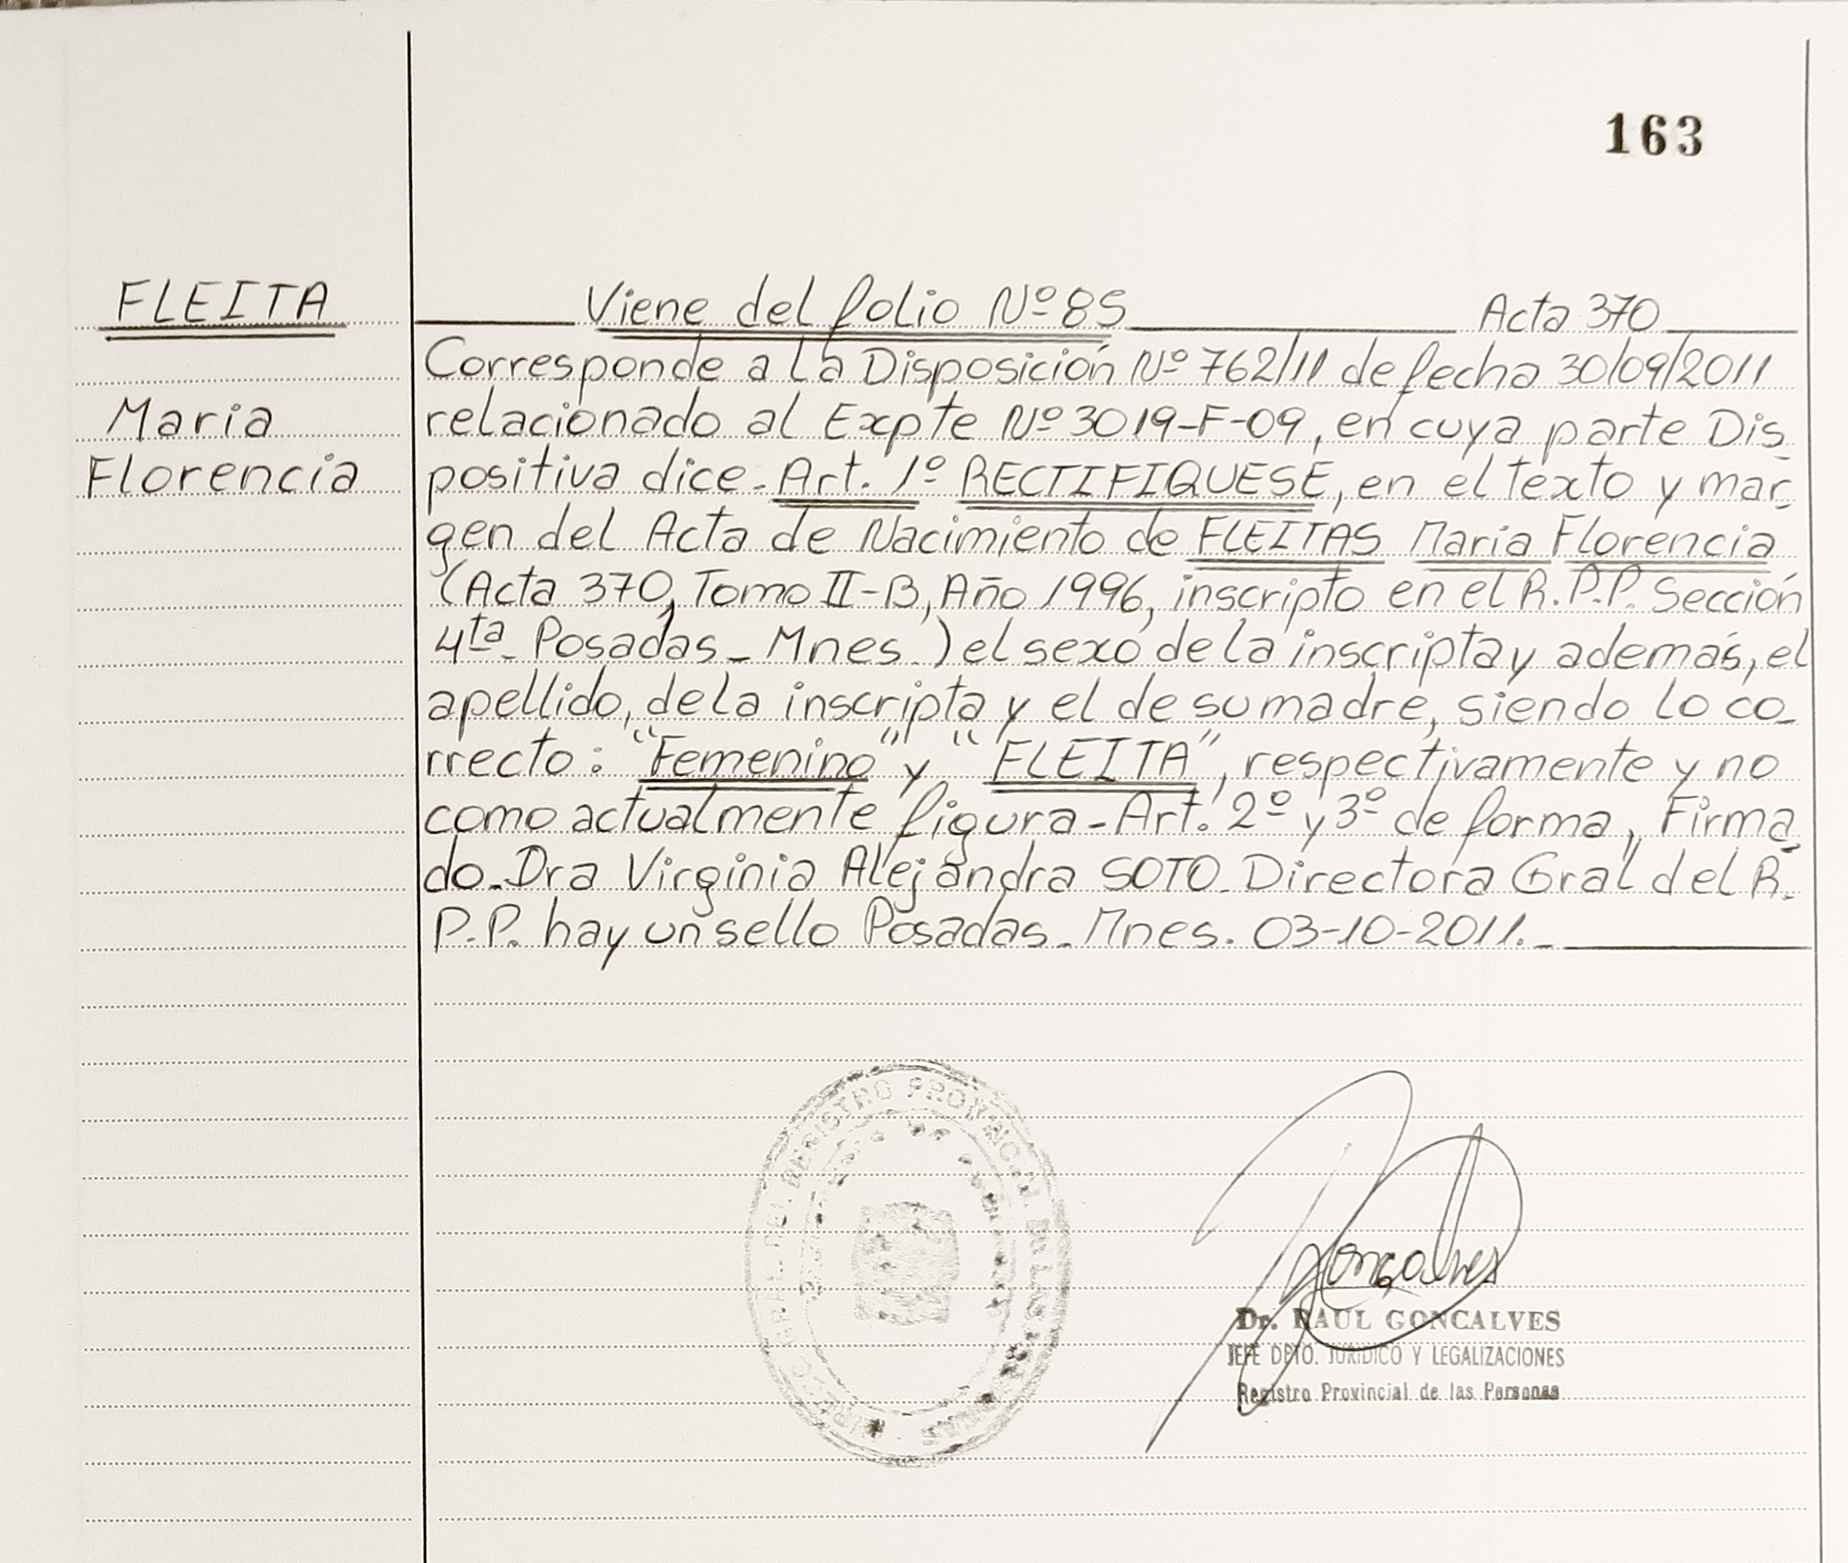 163
FLEITA
Maria
Florencia
Viene del folio Nº 85 Acta 370
Corresponde a la Disposición Nº 762/11 de fecha 30/09/2011
relacionado al Expte Nº 3019-F-09, en cuya parte Dis
positiva dice. Art. 1º RECTIFIQUESE, en el texto y mar
gen del Acta de Nacimiento de FLEITAS Maria Florencia
(Acta 370, Tomo II-B, Año 1996, inscripto en el R.P.P. Sección
4ta Posadas - Mnes.) el sexo de la inscripta y además, el
apellido, de la inscripta y el de su madre, siendo lo co
rrecto: "Femenino" y "FLEITA", respectivamente y no
como actualmente figura - Art. 2º y 3º de forma, Firma
do. Dra Virginia Alejandra SOTO. Directora Gral del R.
P.P. hay un sello Posadas. Mnes. 03-10-2011.-
REGISTRO PROVINCIAL DE LAS
Goncalves
Dr. RAUL GONCALVES
JEFE DPTO. JURIDICO Y LEGALIZACIONES
Registro Provincial de las Personas